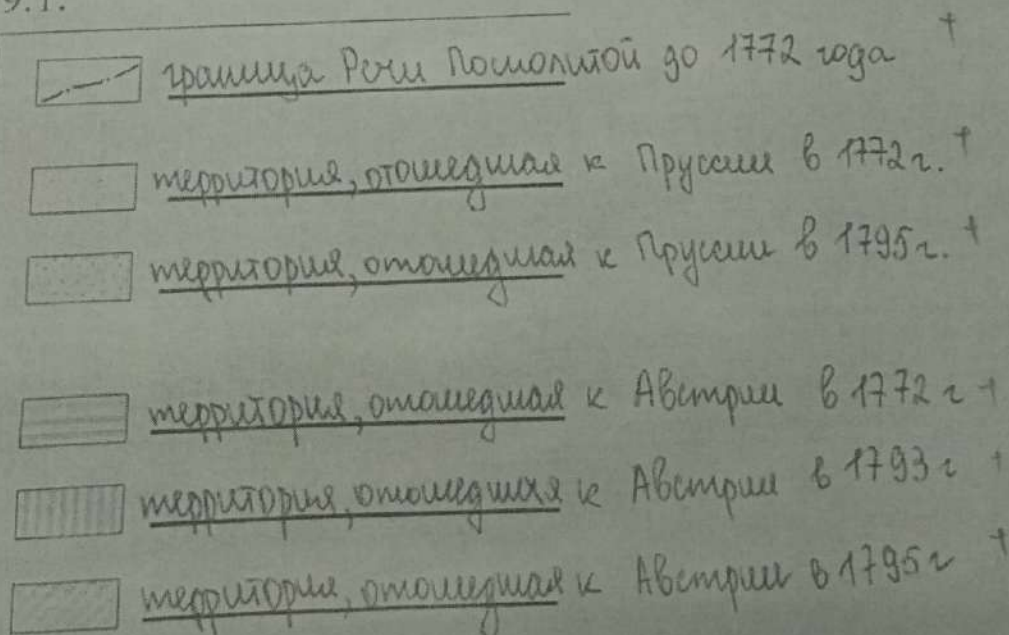 9.1.
граница Речи Посполитой до 1772 года +
территория, отошедшая к Пруссии в 1772 г. +
территория, отошедшая к Пруссии в 1795 г. +
территория, отошедшая к Австрии в 1772 г +
территория, отошедшая к Австрии в 1793 г +
территория, отошедшая к Австрии в 1795 г +